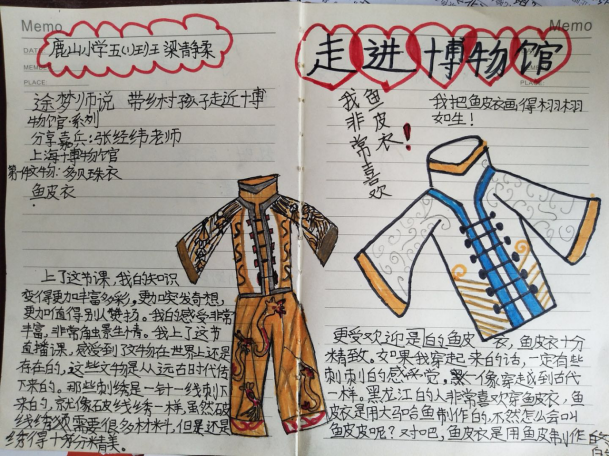 Memo
鹿山小学五(1)班
走进博物馆
Memo
DATE
PLACE:
途梦师说 带乡村孩子走近博
物馆系列
分享嘉宾:张经纬老师
上海博物馆
第一件文物:多贝珠衣
鱼皮衣
上了这节课,我的知识
变得更加丰富多彩,更加突发奇想,
更加值得别人赞扬。我的感受非常
丰富,非常触景生情。我上了这节
直播课,感受到了文物在世界上还是
存在的,这些文物是从远古时代传
下来的。那些刺绣是一针一线刺下
来的,就像石皮线绣一样,虽然破
线绣必须需要很多材料,但是还是
绣得十分精美。
我非常喜欢
鱼皮衣!
我把鱼皮衣画得栩栩
如生!
更受欢迎是白的鱼皮衣,鱼皮衣十分
精致。如果我穿起来的话,一定有些
刺刺的感觉,像穿越到古代
一样。黑龙江的人非常喜欢穿鱼皮衣,鱼
皮衣是用大马哈鱼制作的,不然怎么会叫
鱼皮皮呢?对吧,鱼皮衣是用鱼皮制作